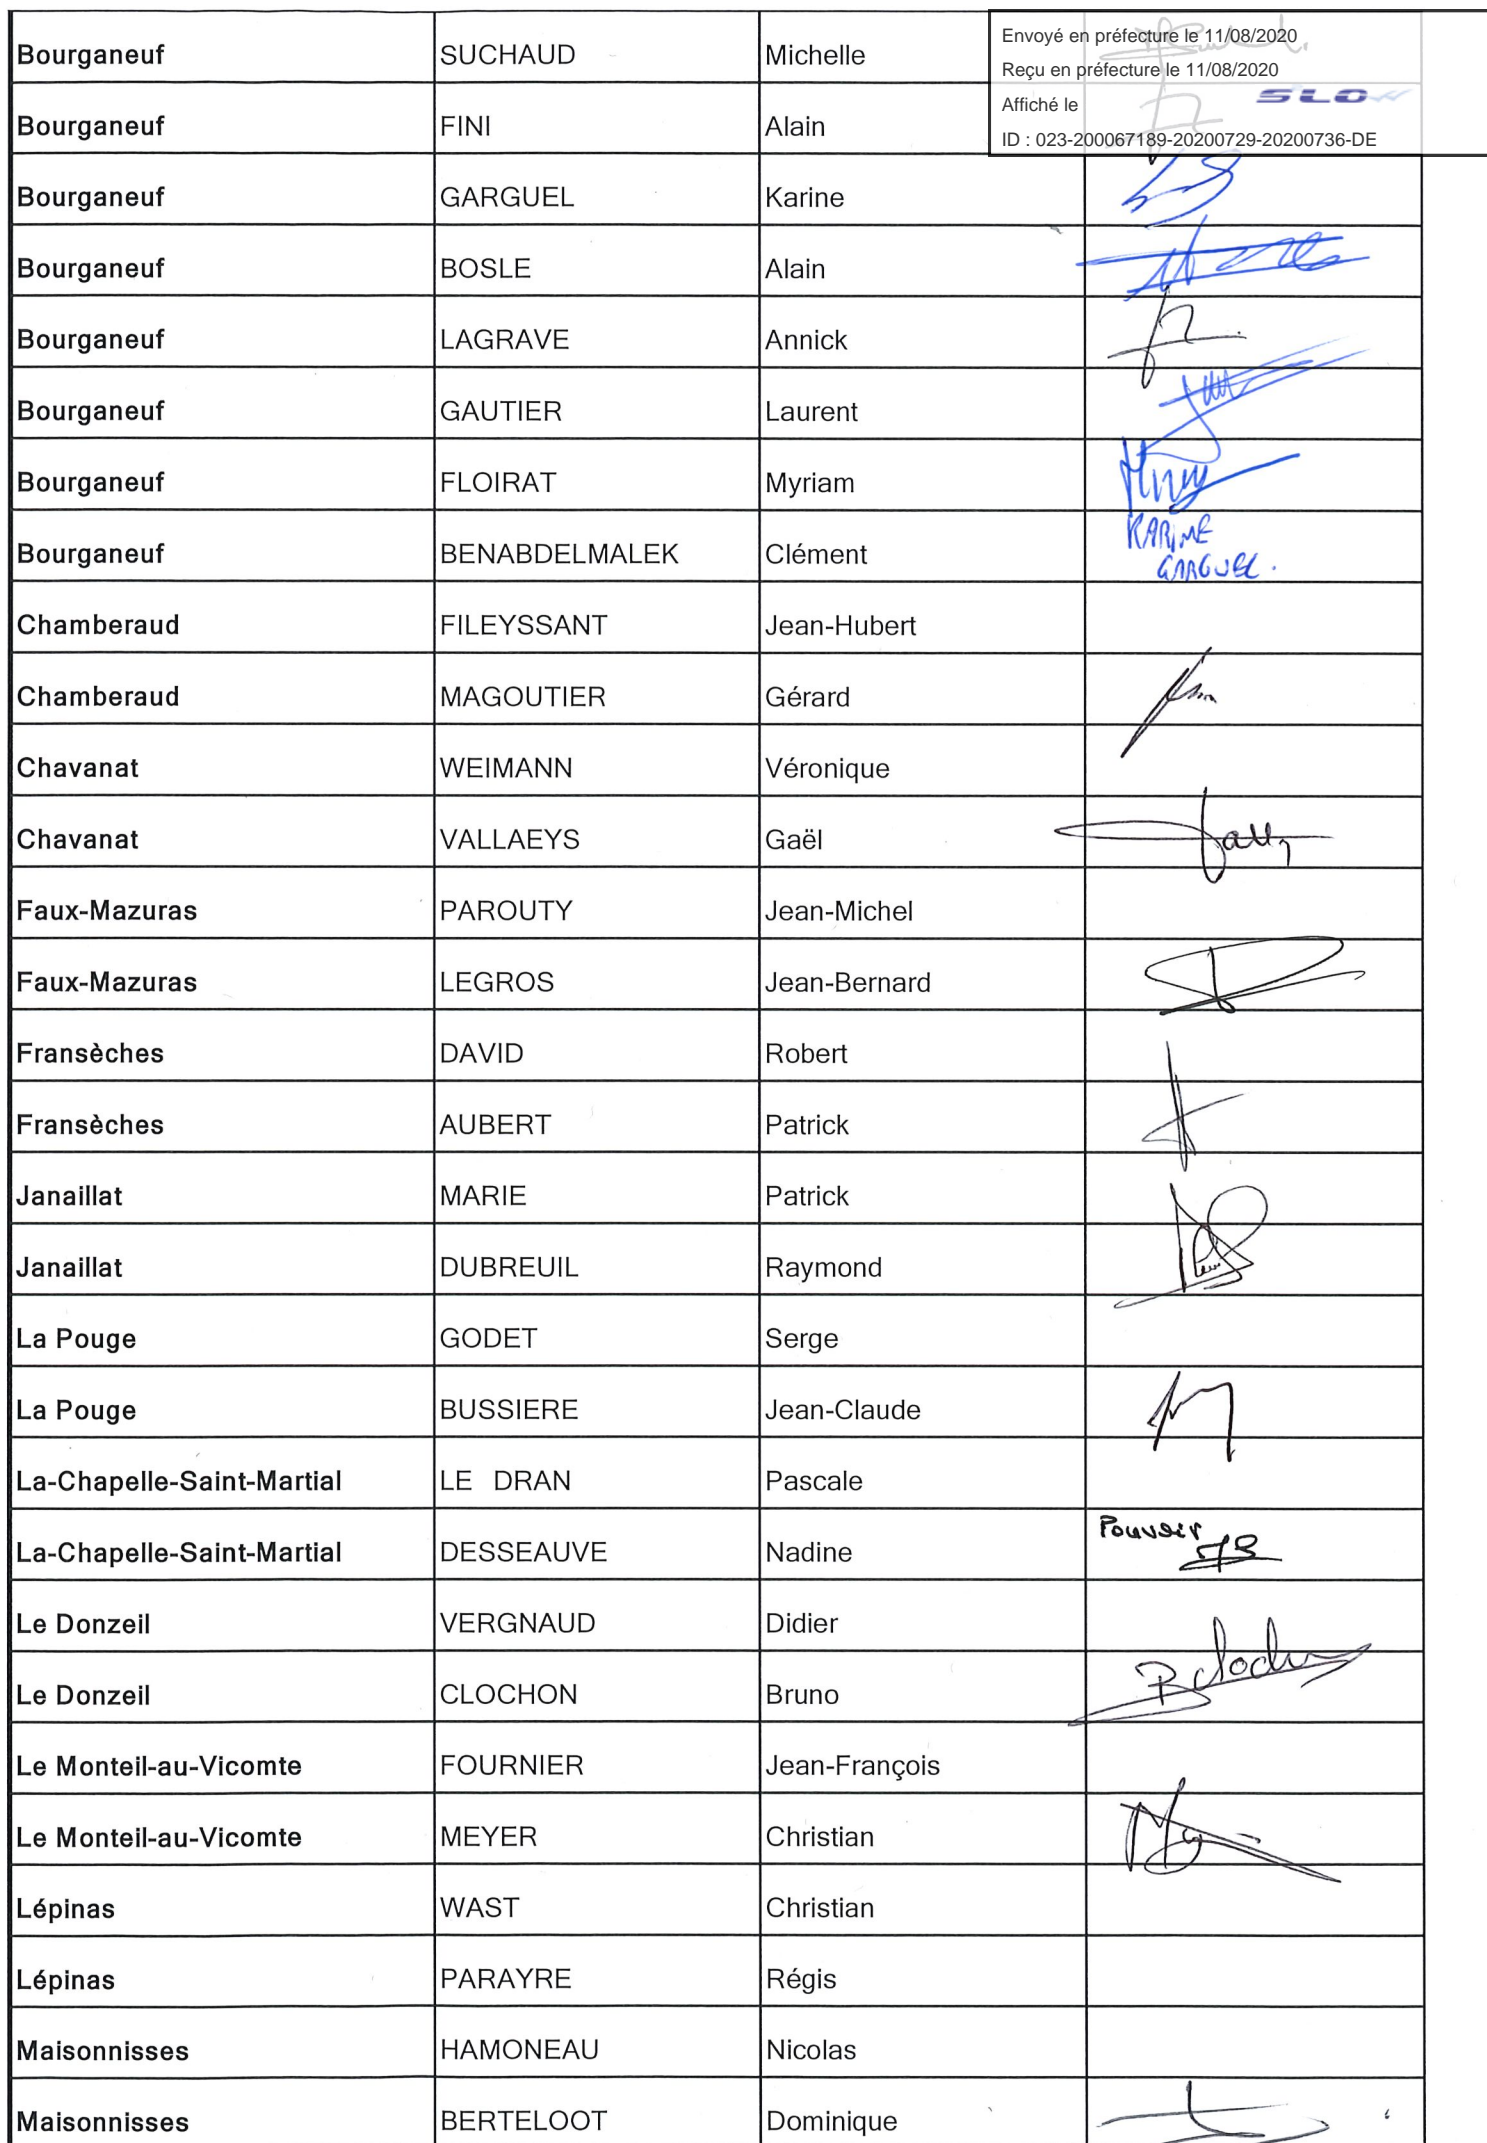 Envoyé en préfecture le 11/08/2020
Reçu en préfecture le 11/08/2020
Affiché le SLOW
ID : 023-200067189-20200729-20200736-DE
Bourganeuf SUCHAUD Michelle
Bourganeuf FINI Alain
Bourganeuf GARGUEL Karine
Bourganeuf BOSLE Alain
Bourganeuf LAGRAVE Annick
Bourganeuf GAUTIER Laurent
Bourganeuf FLOIRAT Myriam
Bourganeuf BENABDELMALEK Clément KARINE
GARGUEL.
Chamberaud FILEYSSANT Jean-Hubert
Chamberaud MAGOUTIER Gérard
Chavanat WEIMANN Véronique
Chavanat VALLAEYS Gaël
Faux-Mazuras PAROUTY Jean-Michel
Faux-Mazuras LEGROS Jean-Bernard
Fransèches DAVID Robert
Fransèches AUBERT Patrick
Janaillat MARIE Patrick
Janaillat DUBREUIL Raymond
La Pouge GODET Serge
La Pouge BUSSIERE Jean-Claude
La-Chapelle-Saint-Martial LE DRAN Pascale
La-Chapelle-Saint-Martial DESSEAUVE Nadine Pouvoir
Le Donzeil VERGNAUD Didier
Le Donzeil CLOCHON Bruno
Le Monteil-au-Vicomte FOURNIER Jean-François
Le Monteil-au-Vicomte MEYER Christian
Lépinas WAST Christian
Lépinas PARAYRE Régis
Maisonnisses HAMONEAU Nicolas
Maisonnisses BERTELOOT Dominique